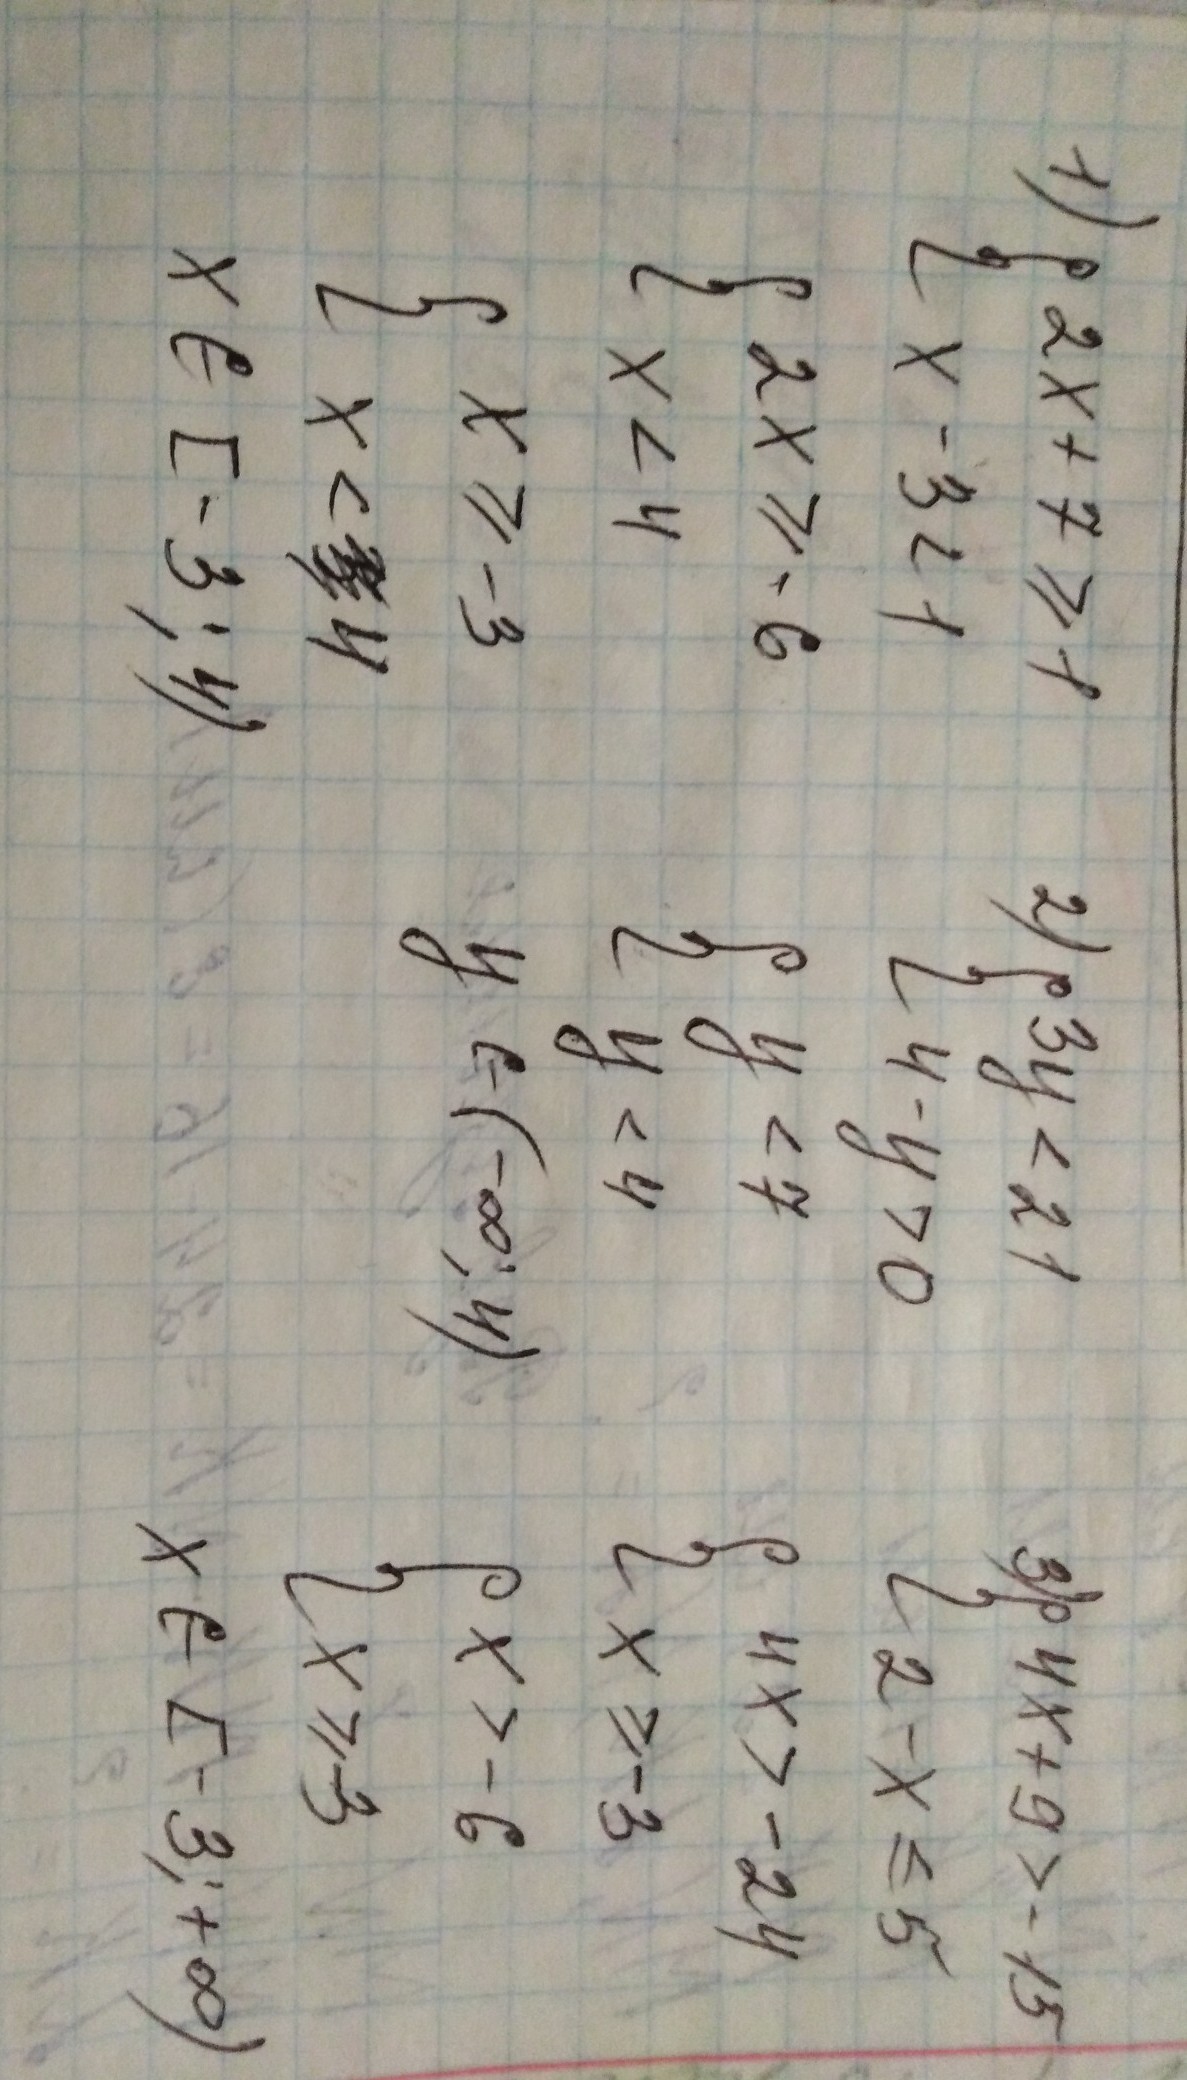 1) { 2x + 7 ⩾ 1
x - 3 < 1
{ 2x ⩾ -6
x < 4
{ x ⩾ -3
x < 4
x ∈ [-3; 4)
2) { 3y < 21
4 - y > 0
{ y < 7
y < 4
y ∈ (-∞; 4)
3) { 4x + 9 > -15
2 - x ≤ 5
{ 4x > -24
x ⩾ -3
{ x > -6
x ⩾ -3
x ∈ [-3; +∞)